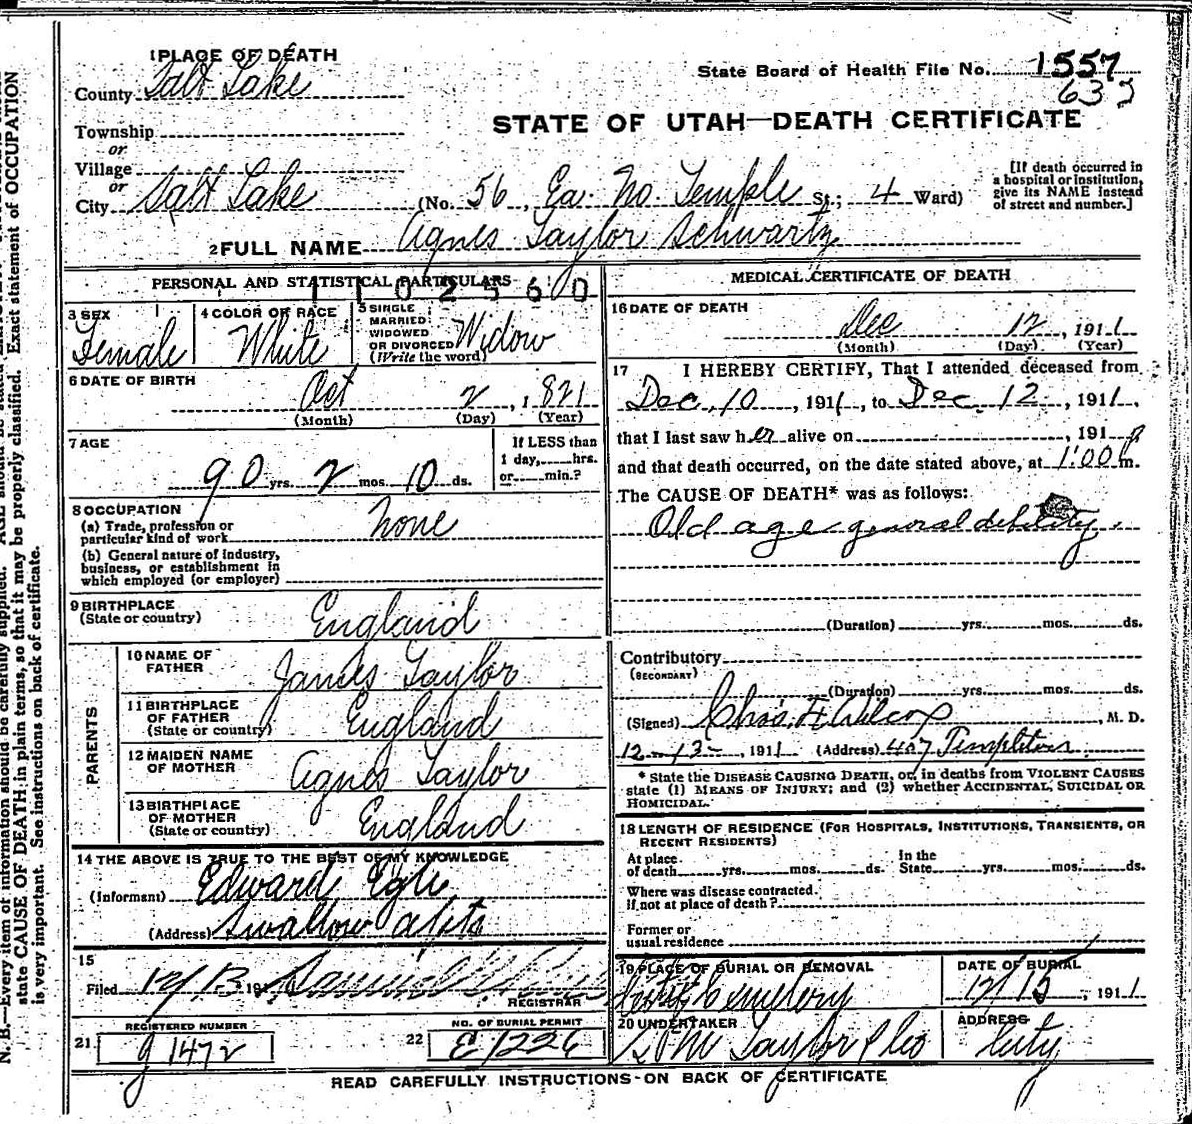 1 PLACE OF DEATH
County Salt Lake
State Board of Health File No. 1557
632
Township
or
Village
or
City Salt Lake (No. 56, Ea. No. Temple St.; 4 Ward)
STATE OF UTAH—DEATH CERTIFICATE
[If death occurred in
a hospital or institution,
give its NAME instead
of street and number.]
2 FULL NAME Agnes Taylor Schwartz
PERSONAL AND STATISTICAL PARTICULARS
1102560
3 SEX
Female
4 COLOR OR RACE
White
5 SINGLE
MARRIED
WIDOWED
OR DIVORCED
(Write the word)
Widow
6 DATE OF BIRTH
Oct 2, 1821
(Month) (Day) (Year)
7 AGE
90 yrs. 2 mos. 10 ds.
If LESS than
1 day, hrs.
or min.?
8 OCCUPATION
(a) Trade, profession or
particular kind of work None
(b) General nature of industry,
business, or establishment in
which employed (or employer)
9 BIRTHPLACE
(State or country) England
PARENTS
10 NAME OF
FATHER James Taylor
11 BIRTHPLACE
OF FATHER
(State or country) England
12 MAIDEN NAME
OF MOTHER Agnes Taylor
13 BIRTHPLACE
OF MOTHER
(State or country) England
14 THE ABOVE IS TRUE TO THE BEST OF MY KNOWLEDGE
(Informant) Edward
(Address)
15
Filed 12/13 191
REGISTRAR
REGISTERED NUMBER
21 g 1472
NO. OF BURIAL PERMIT
22 E 1226
MEDICAL CERTIFICATE OF DEATH
16 DATE OF DEATH
Dec 12, 1911
(Month) (Day) (Year)
17 I HEREBY CERTIFY, That I attended deceased from
Dec. 10, 1911, to Dec. 12, 1911,
that I last saw her alive on , 191
and that death occurred, on the date stated above, at 1:00 m.
The CAUSE OF DEATH* was as follows:
Old age general debility.
(Duration) yrs. mos. ds.
Contributory
(SECONDARY)
(Duration) yrs. mos. ds.
(Signed) Chas. F Wilcox, M. D.
12-13-, 1911 (Address) 407 Templeton
* State the DISEASE CAUSING DEATH, or, in deaths from VIOLENT CAUSES
state (1) MEANS OF INJURY; and (2) whether ACCIDENTAL, SUICIDAL OR
HOMICIDAL.
18 LENGTH OF RESIDENCE (FOR HOSPITALS, INSTITUTIONS, TRANSIENTS, OR
RECENT RESIDENTS)
At place
of death yrs. mos. ds.
In the
State yrs. mos. ds.
Where was disease contracted.
if not at place of death?
Former or
usual residence
19 PLACE OF BURIAL OR REMOVAL
City Cemetery
DATE OF BURIAL
12/15, 1911
20 UNDERTAKER
Taylor & Co
ADDRESS
City
READ CAREFULLY INSTRUCTIONS ON BACK OF CERTIFICATE
N. B.—Every item of information should be carefully supplied. AGE should be stated
state CAUSE OF DEATH in plain terms, so that it may be properly classified. Exact statement of OCCUPATION
is very important. See instructions on back of certificate.